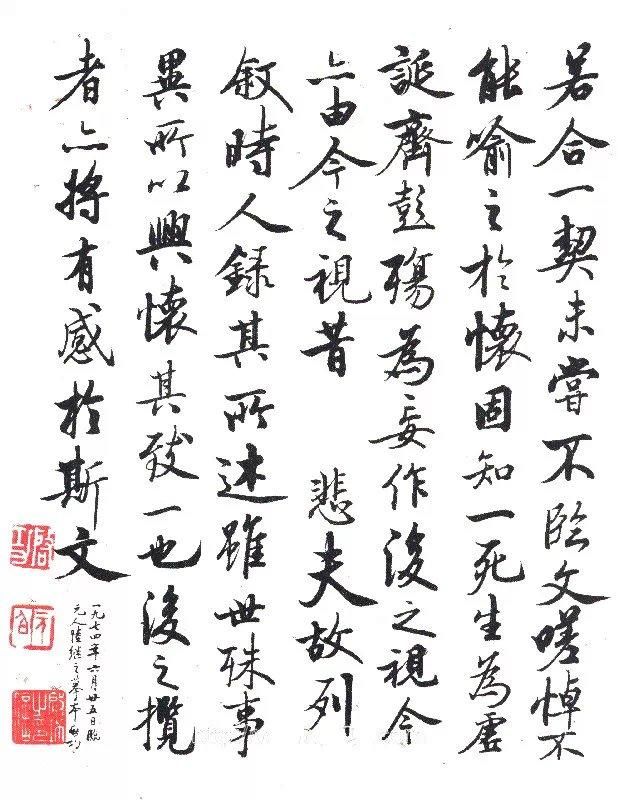 若合一契未嘗不臨文嗟悼不
能喻之於懷固知一死生為虛
誕齊彭殤為妄作後之視今
亦由今之視昔 悲夫故列
敘時人錄其所述雖世殊事
異所以興懷其致一也後之攬
者亦將有感於斯文
一九七四年六月廿五日臨
元人陸繼之摹本 啟功